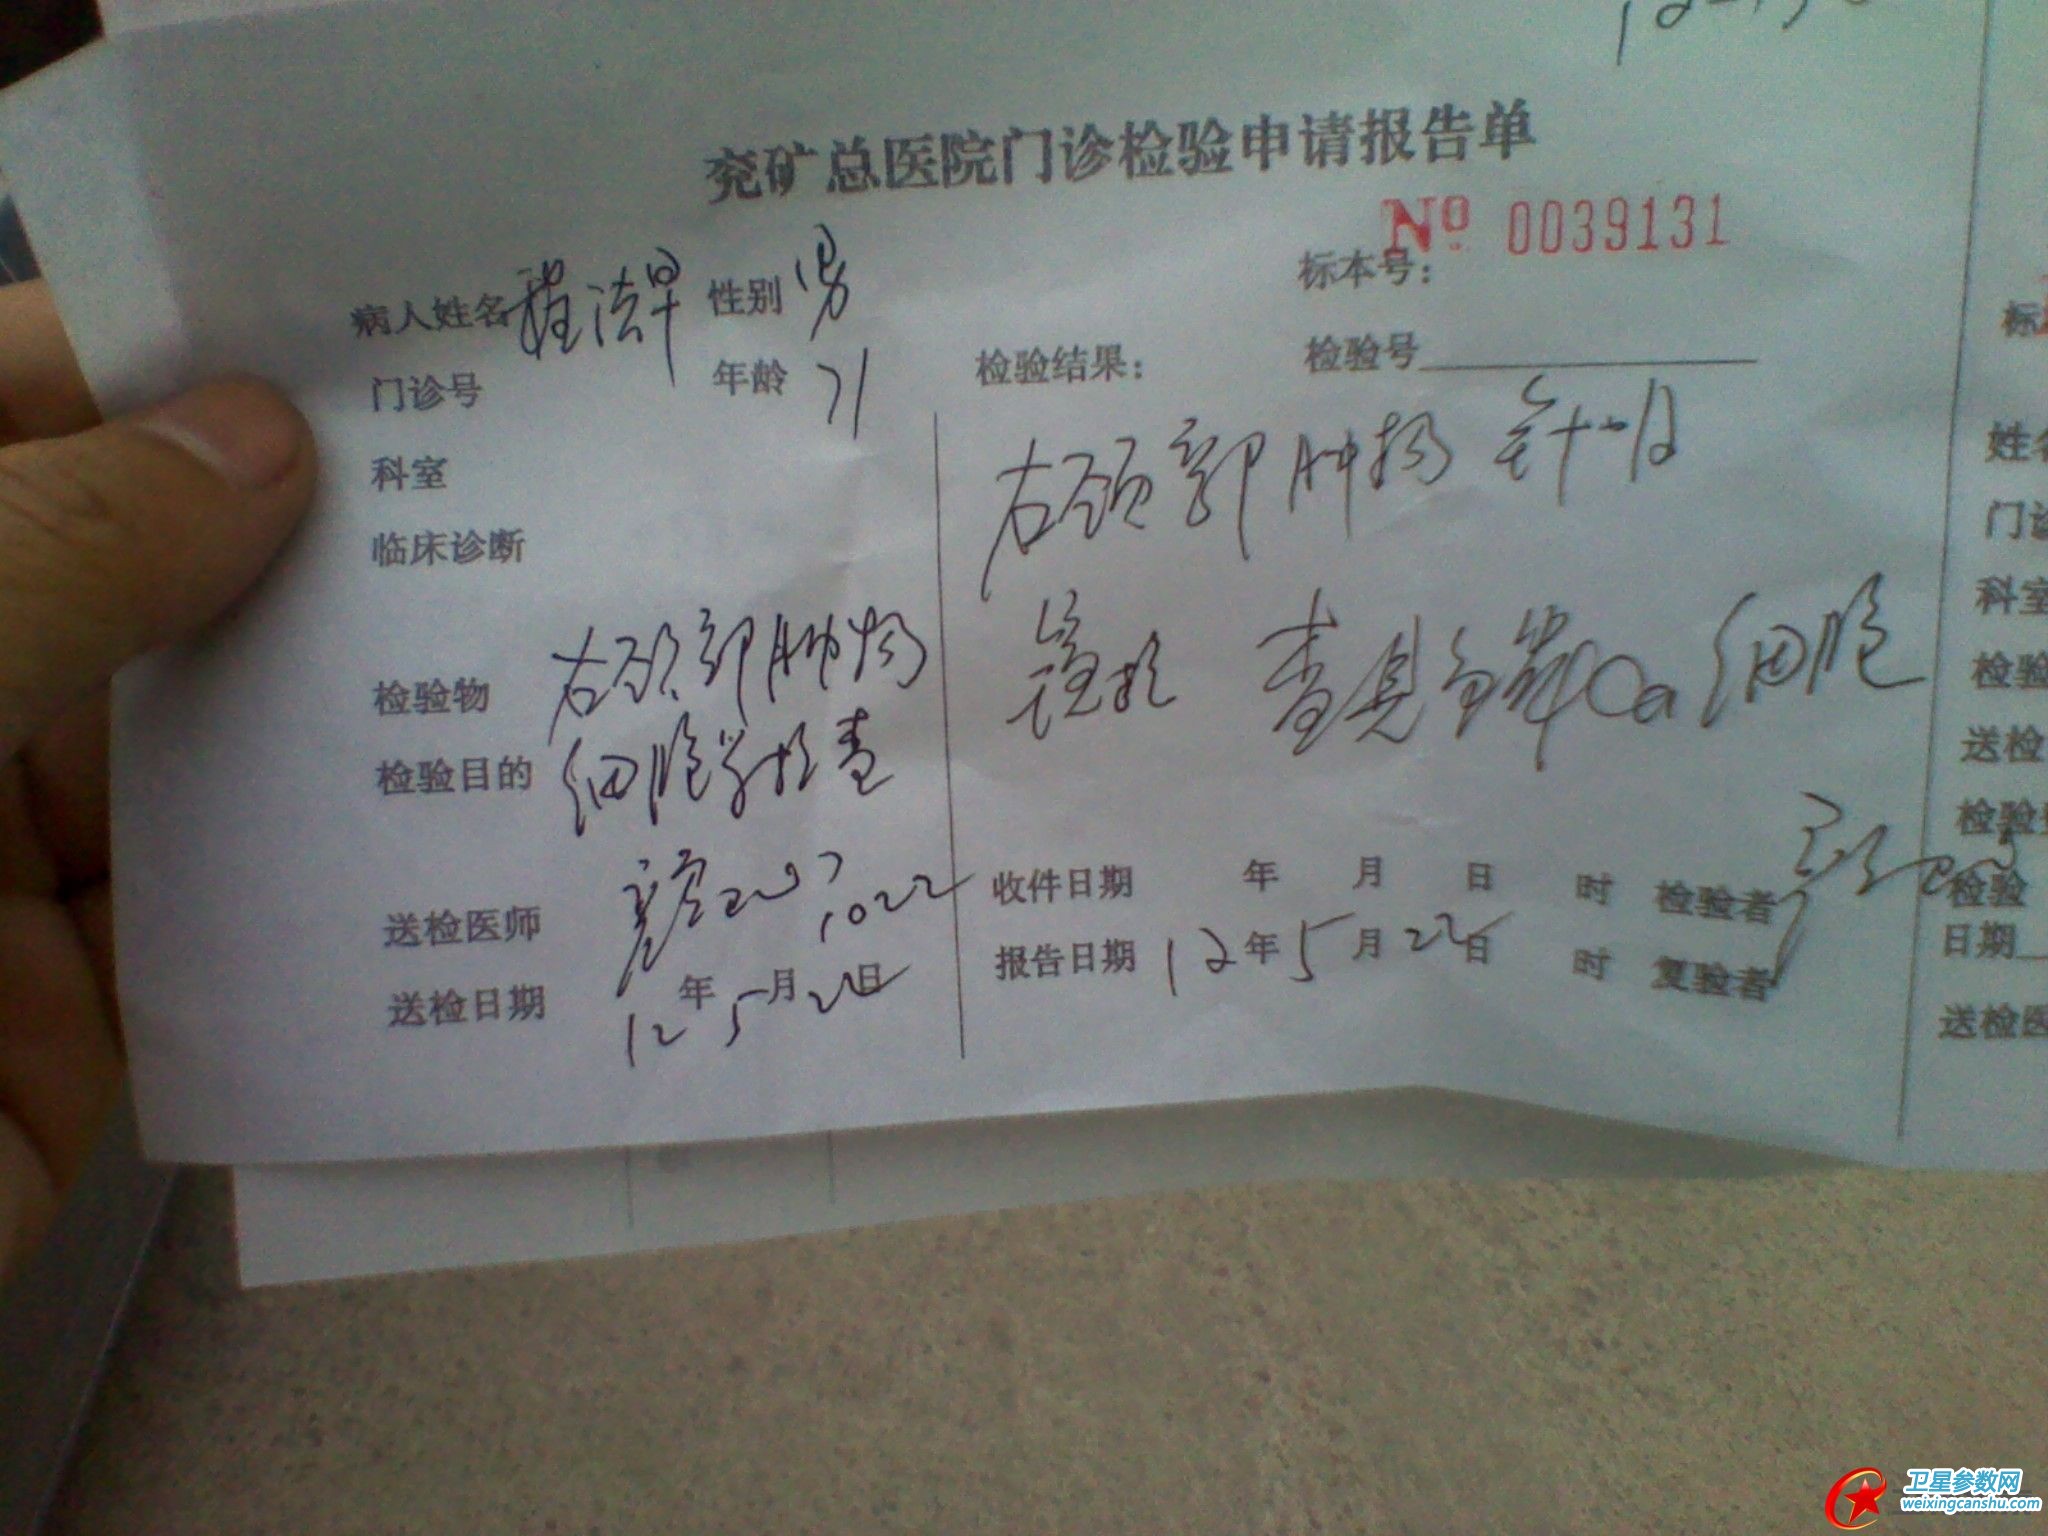 兖矿总医院门诊检验申请报告单
No 0039131
标本号：
病人姓名 程法旱 性别 男
门诊号 年龄 71
检验结果： 检验号
科室
右颈部肿物针吸
临床诊断
镜检 查见鳞Ca细胞
检验物 右颈部肿物
检验目的 细胞学检查
送检医师 1022
送检日期 12年5月22日
收件日期 年 月 日 时 检验者
报告日期 12年5月22日 时 复验者
姓名
门诊
科室
检验
送检
检验
检验
日期
送检医
卫星参数网
weixingcanshu.com